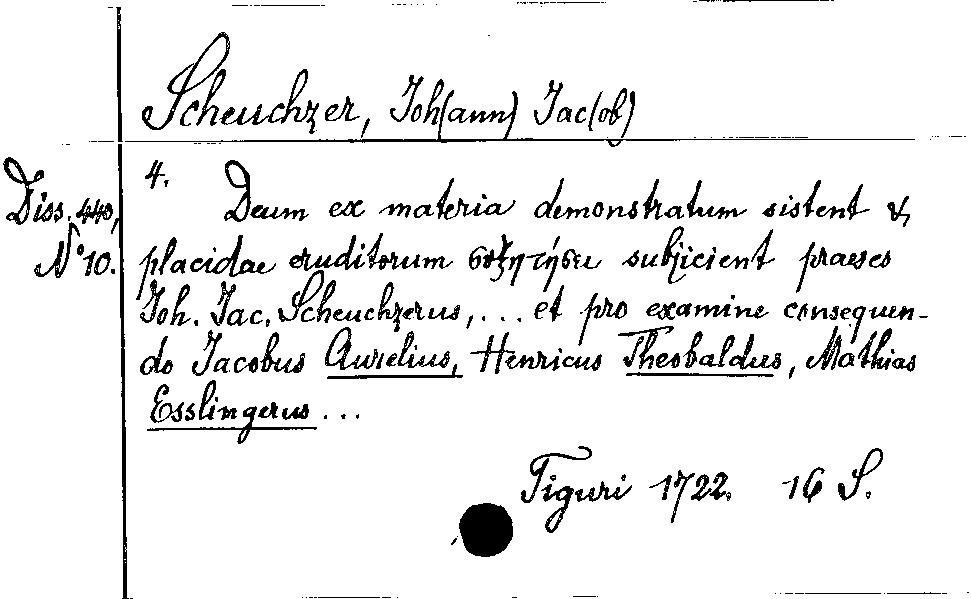 Scheuchzer, Joh(ann) Jac(ob)
4.
Diss. 440,
N° 10.
Deum ex materia demonstratum sistent &
placidae eruditorum συζητήσει subjicient praeses
Joh. Jac. Scheuchzerus, ... et pro examine consequen-
do Jacobus Aurelius, Henricus Theobaldus, Mathias
Esslingerus ...
Tiguri 1722. 16 S.